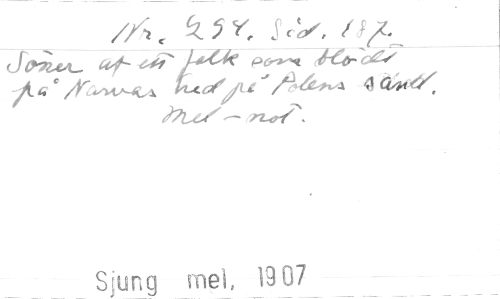 Nr. 294. Sid. 187.
Söner af ett folk som blödt
på Narvas hed på Polens sand.
Mel-not.
Sjung mel, 1907